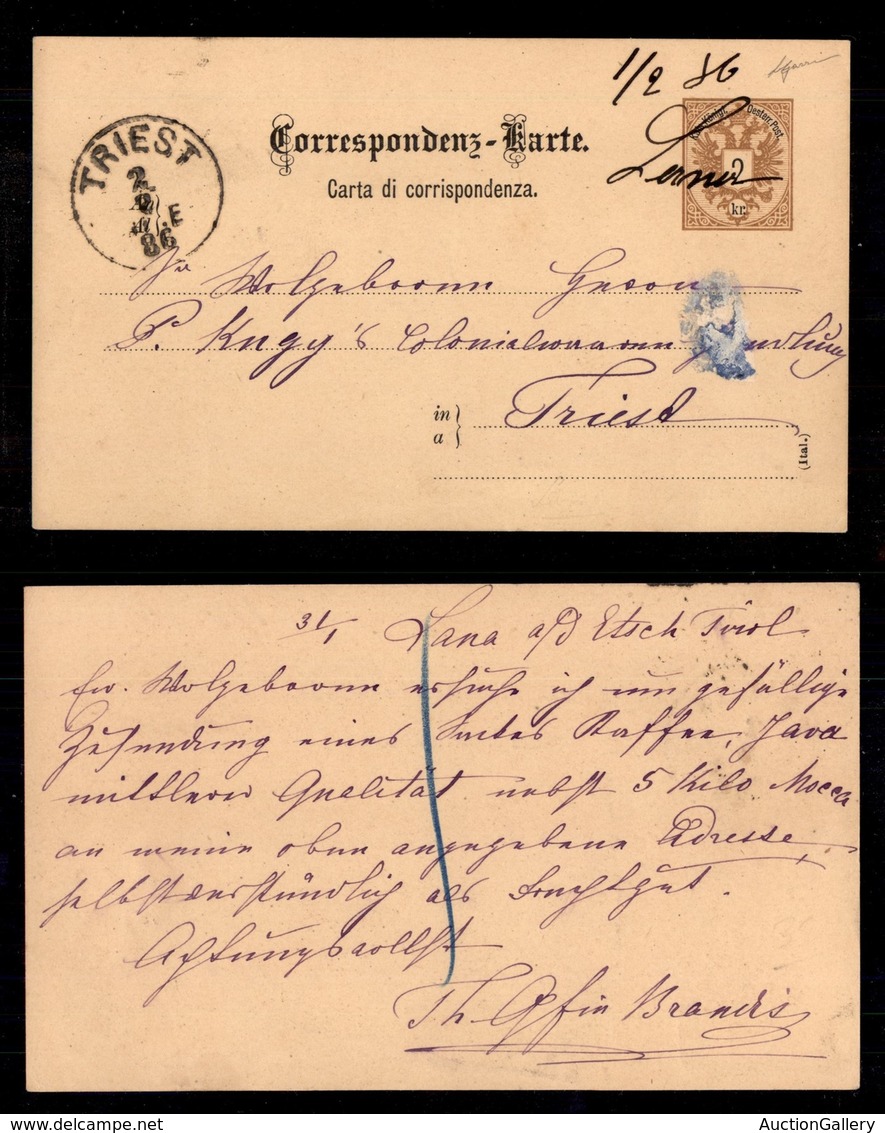 1/2 86
Correspondenz-Karte.
Kais. Königl. Oesterr. Post.
2
kr.
Carta di corrispondenza.
TRIEST
2.
86
E
Sr Wolgeboren Herrn
P. Kugy's Colonialwaarenhandlung
in
a
Triest
(Ital.)
31/1 Lana a/d Etsch Tirol
Ew. Wolgeboren ersuche ich um gefällige
Zusendung eines Sackes Kaffee, Java
mittlerer Qualität nebst 5 Kilo Mocca
an meine oben angegebene Adresse,
selbstverständlich als Frachtgut.
Achtungsvollst
Th. Gfin Brandis
AuctionGallery